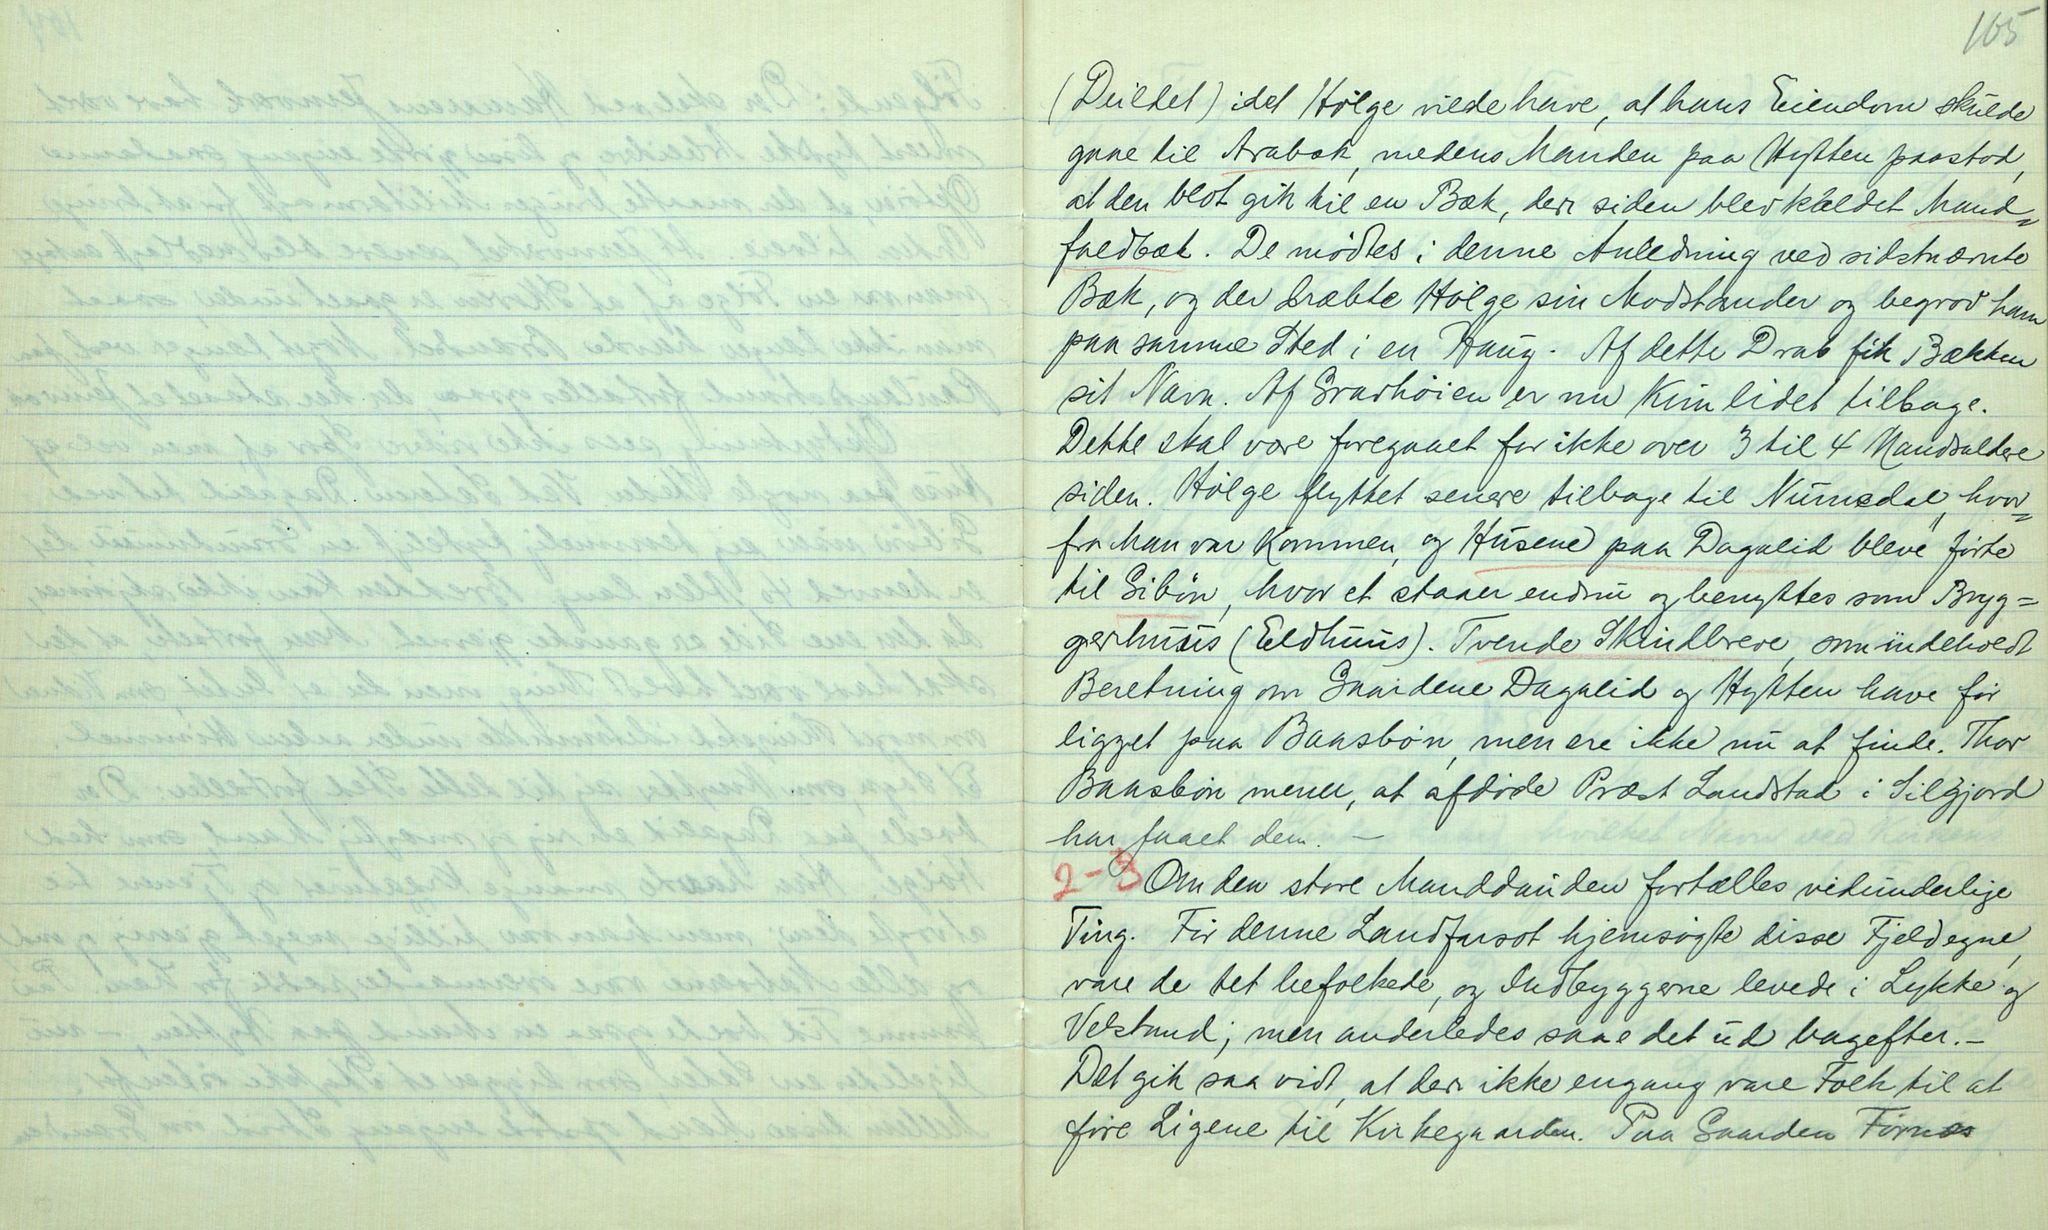 165
(Deildet) idet Hölge vilde have, at hans Eiendom skulde
gaae til Arabæk, medens Manden paa Hytten paastod,
at den blot gik til en Bæk, der siden blev kaldet Mand-
faldbæk. De mødtes i denne Anledning ved sidstnævnte
Bæk, og der dræbte Hölge sin Modstander og begrov ham
paa samme Sted i en Haug. Af dette Drab fik Bækken
sit Navn. Af Gravhöien er nu kun lidet tilbage.
Dette skal være foregaaet for ikke over 3 til 4 Mandsaldere
siden. Hölge flyttet senere tilbage til Numedal, hvor-
fra Man var kommen, og Husene paa Dagalid bleve førte
til Gibøn, hvor et staaer endnu og benyttes som Bryg=
gerhuus (Eldhuus). Tvende Skindbreve, som indeholdt
Beretning om Gaardene Dagalid og Hytten have før
ligget paa Baasbøn, men ere ikke nu at finde. Thor
Baasbøn mener, at afdøde Præst Landstad i Silgjord
har faaet dem. —
2-3 Om den store Manddauden fortælles vidunderlige
Ting. Før denne Landfarsot hjemsøgte disse Fjeldegne,
vare de tet befolkede, og Indbyggerne levede i Lykke og
Velstand; men anderledes saae det ud bagefter. —
Det gik saa vidt, at der ikke engang vare Folk til at
føre Ligene til Kirkegaarden. Paa Gaarden Førnes